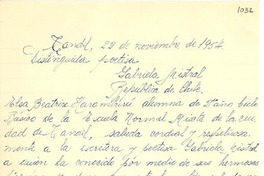 1032
Tandil, 29 de noviembre de 1954
Distinguida poetisa
Gabriela Mistral
República de Chile.
Elsa Beatriz alumna de 1º año ciclo
Básico de la Escuela Normal Mixta de la ciu
dad de Tandil, saluda cordial y respetuosa
mente a la escritora y poetisa Gabriela Mistral
a quien ha conocido por medio de sus hermosas